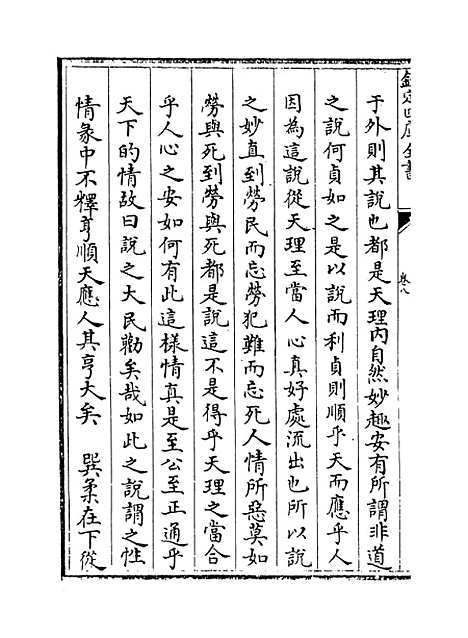 欽定四庫全書
卷八
于外則其說也都是天理內自然妙趣安有所謂非道
之說何貞如之是以說而利貞則順乎天而應乎人
因為這說從天理至當人心真好處流出也所以說
之妙直到勞民而忘勞犯難而忘死人情所惡莫如
勞與死到勞與死都是說這不是得乎天理之當合
乎人心之安如何有此這樣情真是至公至正通乎
天下的情故曰說之大民勸矣哉如此之說謂之性
情彖中不釋亨順天應人其亨大矣　巽柔在下從